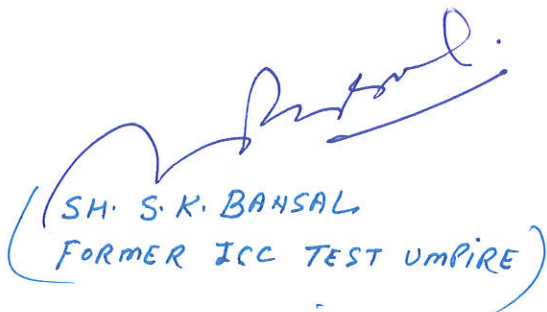 (SH. S.K. BANSAL
FORMER ICC TEST UMPIRE)